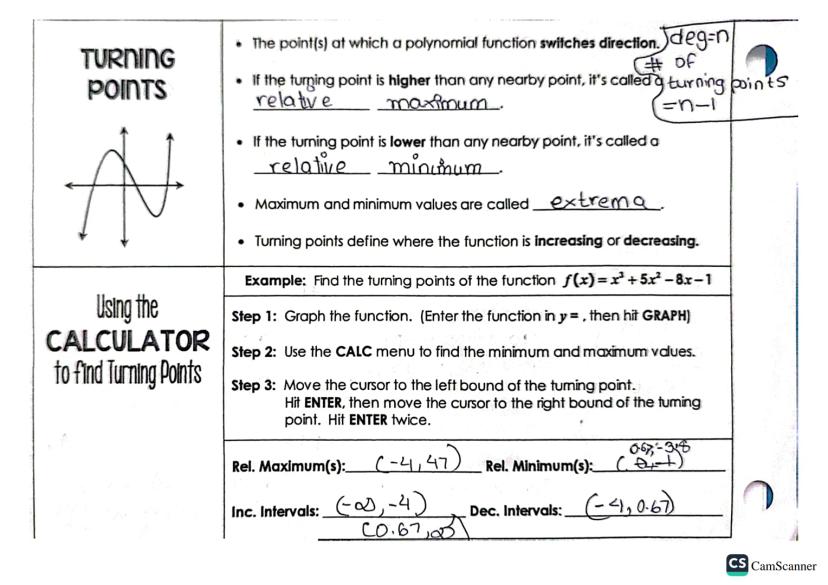 TURNING
POINTS
• The point(s) at which a polynomial function switches direction.
deg=n
# of
turning points
=n-1
• If the turning point is higher than any nearby point, it's called a
relative maximum.
• If the turning point is lower than any nearby point, it's called a
relative minimum.
• Maximum and minimum values are called extrema.
• Turning points define where the function is increasing or decreasing.
Using the
CALCULATOR
to find Turning Points
Example: Find the turning points of the function f(x) = x³ + 5x² - 8x - 1
Step 1: Graph the function. (Enter the function in y = , then hit GRAPH)
Step 2: Use the CALC menu to find the minimum and maximum values.
Step 3: Move the cursor to the left bound of the turning point.
Hit ENTER, then move the cursor to the right bound of the turning
point. Hit ENTER twice.
Rel. Maximum(s): (-4,47) Rel. Minimum(s): (0.67,-3.8)
Inc. Intervals: (-∞,-4) Dec. Intervals: (-4,0.67)
(0.67,∞)
CS CamScanner